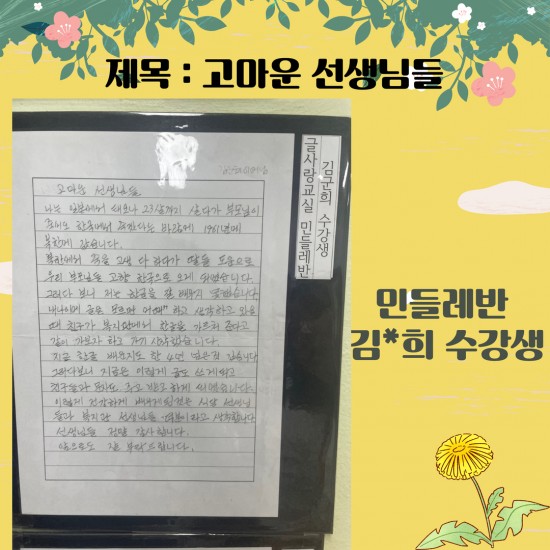 제목 : 고마운 선생님들
글사랑교실 민들레반
김군희 수강생
고마운 선생님들
나는 일본에서 태어나 23살까지 살다가 부모님이
한국에서 바람에 1961년에
갔습니다.
북한에서 죽을 고생 다 하다가 딸들 도움으로
우리 부모님들 고향 한국으로 오게 되었습니다.
그러다 보니 저는 한글을 잘 배우지 못했습니다.
내나이에 글은 모르면 어때" 하고 생각하고 있을
때 친구가 복지관에서 한글을 가르쳐 준다고
같이 가보자 하고 가기 시작했습니다.
지금 한글 배운지도 한 4년 넘은것 같습니다
그러다보니 지금은 이렇게 글도 쓰게 되고
친구들과 문자도 주고 받고 하게 되었습니다.
이렇게 건강하게 배우게 된것은 선생님
들과 복지관 선생님들 덕분이라고 생각합니다
선생님들 정말 감사합니다.
앞으로도 잘 부탁드립니다.
민들레반
김*희 수강생